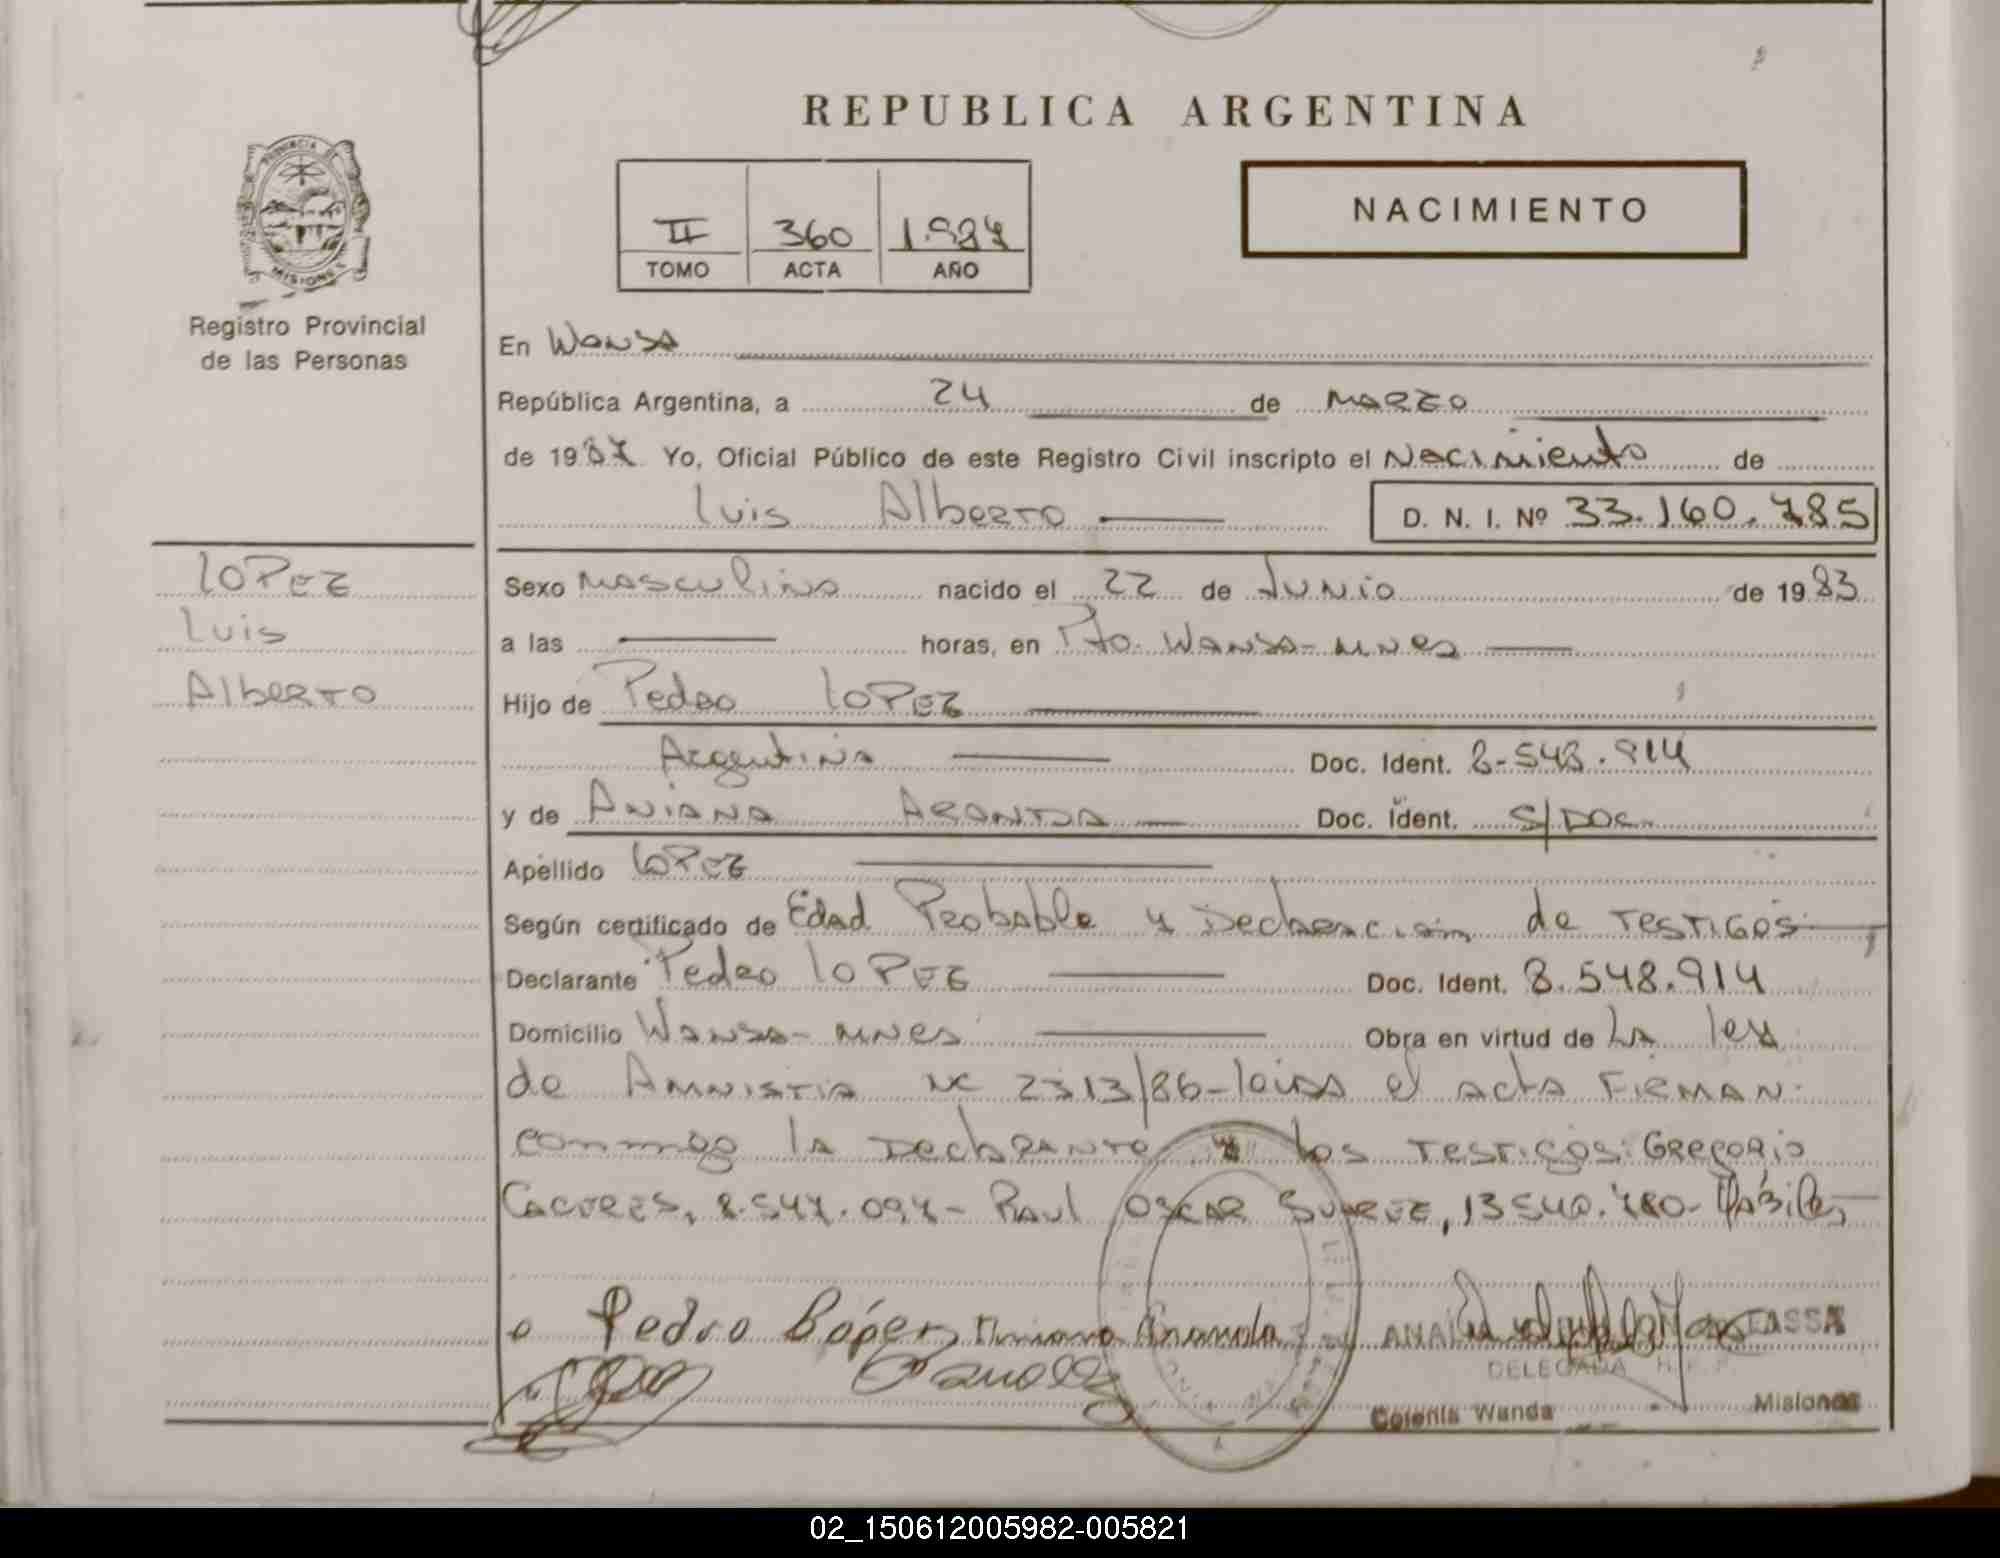 REPUBLICA ARGENTINA
PROVINCIA DE
MISIONES
Registro Provincial
de las Personas
II 360 1.987
TOMO ACTA AÑO
NACIMIENTO
En Wanda
República Argentina, a 24 de Marzo
de 1987 Yo, Oficial Público de este Registro Civil inscripto el Nacimiento de
Luis Alberto D. N. I. Nº 33.160.785
LOPEZ
Luis
Alberto
Sexo Masculino nacido el 22 de Junio de 1983
a las horas, en Pto. Wanda-Mnes
Hijo de Pedro LOPEZ
Argentina Doc. Ident. 8.548.914
y de Aniana ARANDA Doc. Ident. S/DOC.
Apellido LOPEZ
Según certificado de Edad Probable y Declaración de Testigos
Declarante Pedro LOPEZ Doc. Ident. 8.548.914
Domicilio Wanda-Mnes Obra en virtud de La ley
de Amnistia Nº 2313/86-leida el acta FIRMAN
conmigo la Declarante y los Testigos: Gregorio
Caceres, 8.547.097- Raul Oscar Suarez, 13.540.780- Hábiles
Pedro López
DELEGADA
Colonia Wanda Misiones
02_150612005982-005821